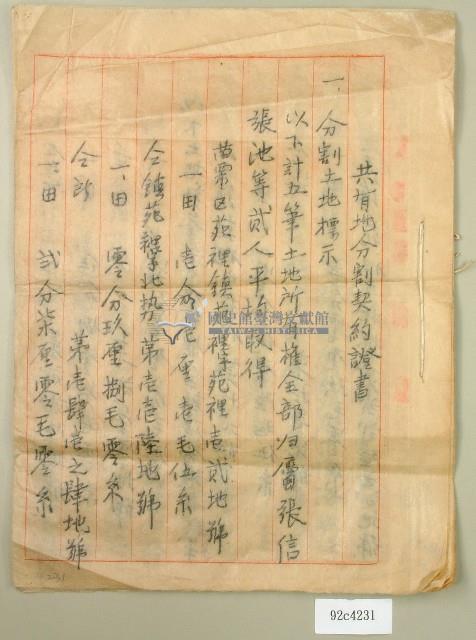 共有地分割契約證書
一、分割土地標示
以下計五筆土地所有權全部归屬張信
張池等貳人平均取得
苗栗区苑裡鎮苑裡字苑裡壹貳地號
一、田 壹分 厘壹毛伍糸
仝鎮苑裡字北势第壹壹陸地號
一、田 零分玖厘捌毛零糸
仝所 第壹肆壹之肆地號
一、田 貳分柒厘零毛零糸
國史館臺灣文獻館
TAIWAN HISTORICA
92c4231